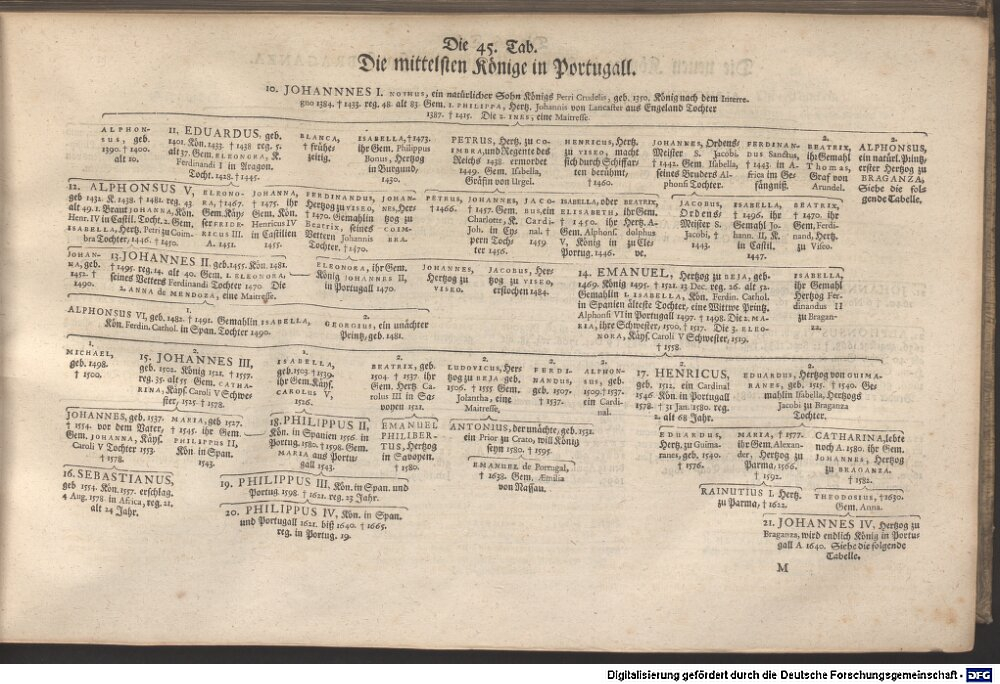 Die 45. Tab.
Die mittelsten Könige in Portugall.
10. JOHANNNES I. NOTHUS, ein natürlicher Sohn Königs Petri Crudelis, geb. 1350. König nach dem Interre-
gno 1384. † 1433. reg. 48. alt 83. Gem. 1. PHILIPPA, Hertz. Johannis von Lancaster aus Engeland Tochter
1387. † 1415. Die 2. INES, eine Maitresse.
ALPHON-
SUS, geb.
1390. † 1400.
alt 10.
11. EDUARDUS, geb.
1401. Kön. 1433. † 1438 reg. 5.
alt 37. Gem. ELEONORA, K.
Ferdinandi I in Aragon.
Tocht. 1428. † 1445.
BLANCA,
† früh-
zeitig.
ISABELLA, † 1473.
ihr Gem. Philippus
Bonus, Hertzog
in Burgund,
1430.
PETRUS, Hertz. zu CO-
IMBRA, und Regente des
Reichs 1438. ermordet
1449. Gem. Isabella,
Gräfin von Urgel.
HENRICUS, Hertz.
zu VISEO, macht
sich durch Schiffar-
ten berühmt,
† 1460.
JOHANNES, Ordens-
Meister S. Jacobi,
† 1442. Gem. Isabella,
seines Bruders Al-
phonsi Tochter.
FERDINAN-
DUS Sanctus,
† 1443 in A-
frica im Ge-
fängniß.
2.
BEATRIX,
ihr Gemahl
Thomas,
Graf von
Arundel.
2.
ALPHONSUS,
ein natürl. Printz,
erster Hertzog zu
BRAGANZA,
Siehe die fol-
gende Tabelle.
12. ALPHONSUS V,
geb 1432. K. 1438. † 1481. reg. 43.
alt 49. 1. Braut JOHANNA, Kön.
Henr. IV in Castil. Tocht. 2. Gem.
ISABELLA, Hertz. Petri zu Coim-
bra Tochter, 1446. † 1450.
ELEONO-
RA, † 1467.
Gem. Käy-
ser FRIDE-
RICUS III.
A. 1451.
JOHANNA,
† 1475. ihr
Gem. Kön.
Henricus IV
in Castilien
1455.
FERDINANDUS,
Hertzog zu VISEO,
† 1470. Gemahlin
Beatrix, seines
Vettern Johannis
Tochter. † 1470.
JOHAN-
NES, Hertz.
zu
COIM-
BRA.
PETRUS,
† 1466.
JOHANNES,
† 1457. Gem.
Charlotte, K.
Joh. in Cy-
pern Toch-
ter 1456.
JACO-
BUS, ein
Cardi-
nal, †
1459
ISABELLA, oder
ELISABETH,
† 1450. ihr
Gem. Alphons.
V, König in
Portug. 1446.
BEATRIX,
ihr Gem.
Hertz. A-
dolphus
zu Cle-
ve.
JACOBUS,
Ordens-
Meister S.
Jacobi, †
1443.
ISABELLA,
† 1496. ihr
Gemahl Jo-
hann. II, K.
in Castil.
1447.
BEATRIX,
† 1470. ihr
Gem. Ferdi-
nand, Hertz.
zu Viseo.
JOHAN-
NA, geb.
1452. †
1490.
13. JOHANNES II. geb. 1455. Kön. 1481.
† 1495. reg. 14. alt 40. Gem. 1. ELEONORA,
seines Vetters Ferdinandi Tochter 1470 Die
2. ANNA de MENDOZA, eine Maitresse.
ELEONORA, ihr Gem.
König JOHANNES II.
in Portugall 1470.
JOHANNES,
Hertzog zu
VISEO.
JACOBUS, Her-
tzog zu VISEO,
erstochen 1484.
14. EMANUEL, Hertzog zu BEJA, geb.
1469. König 1495. † 1521. 13 Dec. reg. 26. alt 52.
Gemahlin 1. ISABELLA, Kön. Ferdin. Cathol.
in Spanien älteste Tochter, eine Wittwe Printz.
Alphonsi VI in Portugall 1497. † 1498. Die 2. MA-
RIA, ihre Schwester, 1500. † 1517. Die 3. ELEO-
NORA, Käys. Caroli V Schwester, 1519.
† 1558.
ISABELLA,
ihr Gemahl
Hertzog Fer-
dinandus II
zu Bragan-
za.
1.
ALPHONSUS VI, geb. 1482. † 1491. Gemahlin ISABELLA,
Kön. Ferdin. Cathol. in Span. Tochter 1490.
2.
GEORGIUS, ein unächter
Printz, geb. 1481.
1.
MICHAEL,
geb. 1498.
† 1500.
2.
15. JOHANNES III,
geb. 1502. König 1521. † 1557.
reg. 35. alt 55 Gem. CATHA-
RINA, Käys. Caroli V Schwe-
ster, 1525. † 1578.
1.
ISABELLA,
geb. 1503 † 1539.
ihr Gem. Käys.
CAROLUS V,
1526.
2.
BEATRIX, geb.
1504 † 1537. ihr
Gem. Hertz. Ca-
rolus III in Sa-
voyen 1521.
2.
LUDOVICUS, Her-
tzog zu BEJA geb.
1506. † 1555 Gem.
Jolantha, eine
Maitresse,
2.
FERDI-
NANDUS,
geb. 1507.
† 1537.
2.
ALPHON-
SUS, geb.
1509. † 1537.
ein Cardi-
nal.
2.
17. HENRICUS,
geb. 1512. ein Cardinal
1546. Kön. in Portugall
1578. † 31 Jan. 1580. reg.
2. alt 68 Jahr.
2.
EDUARDUS, Hertzog von GUIMA-
RANES, geb. 1515. † 1540. Ge-
mahlin Isabella, Hertzogs
Jacobi zu Braganza
Tochter.
JOHANNES, geb. 1537.
† 1554. vor dem Vater,
Gem. JOHANNA, Käys.
Caroli V Tochter 1553.
† 1578.
MARIA, geb 1527.
† 1545. ihr Gem.
PHILIPPUS II,
Kön. in Span.
1543.
18. PHILIPPUS II,
Kön. in Spanien 1556. in
Portug. 1580. † 1598. Gem.
MARIA aus Portu-
gall 1543.
EMANUEL
PHILIBER-
TUS, Hertzog
in Savoyen.
† 1580.
ANTONIUS, der unächte, geb. 1531.
ein Prior zu Crato, will König
seyn 1580. † 1595.
EDUARDUS,
Hertz. zu Guima-
ranes, geb. 1540.
† 1576.
MARIA, † 1577.
ihr Gem. Alexan-
der, Hertzog zu
Parma, 1566.
† 1592.
CATHARINA, lebte
noch A. 1580. ihr Gem.
JOHANNES, Hertzog
zu BRAGANZA.
† 1582.
EMANUEL de Portugal,
† 1638. Gem. Æmilia
von Nassau.
16. SEBASTIANUS,
geb. 1554. Kön. 1557. erschlag.
4 Aug. 1578. in Africa, reg. 21.
alt 24 Jahr.
19. PHILIPPUS III, Kön. in Span. und
Portug. 1598 † 1621. reg. 23 Jahr.
20. PHILIPPUS IV, Kön. in Span.
und Portugall 1621. biß 1640. † 1665.
reg. in Portug. 19.
RAINUTIUS I, Hertz.
zu Parma, † 1622.
THEODOSIUS, † 1630.
Gem. Anna.
21. JOHANNES IV, Hertzog zu
Braganza, wird endlich König in Portu-
gall A. 1640. Siehe die folgende
Tabelle.
M
Digitalisierung gefördert durch die Deutsche Forschungsgemeinschaft - DFG